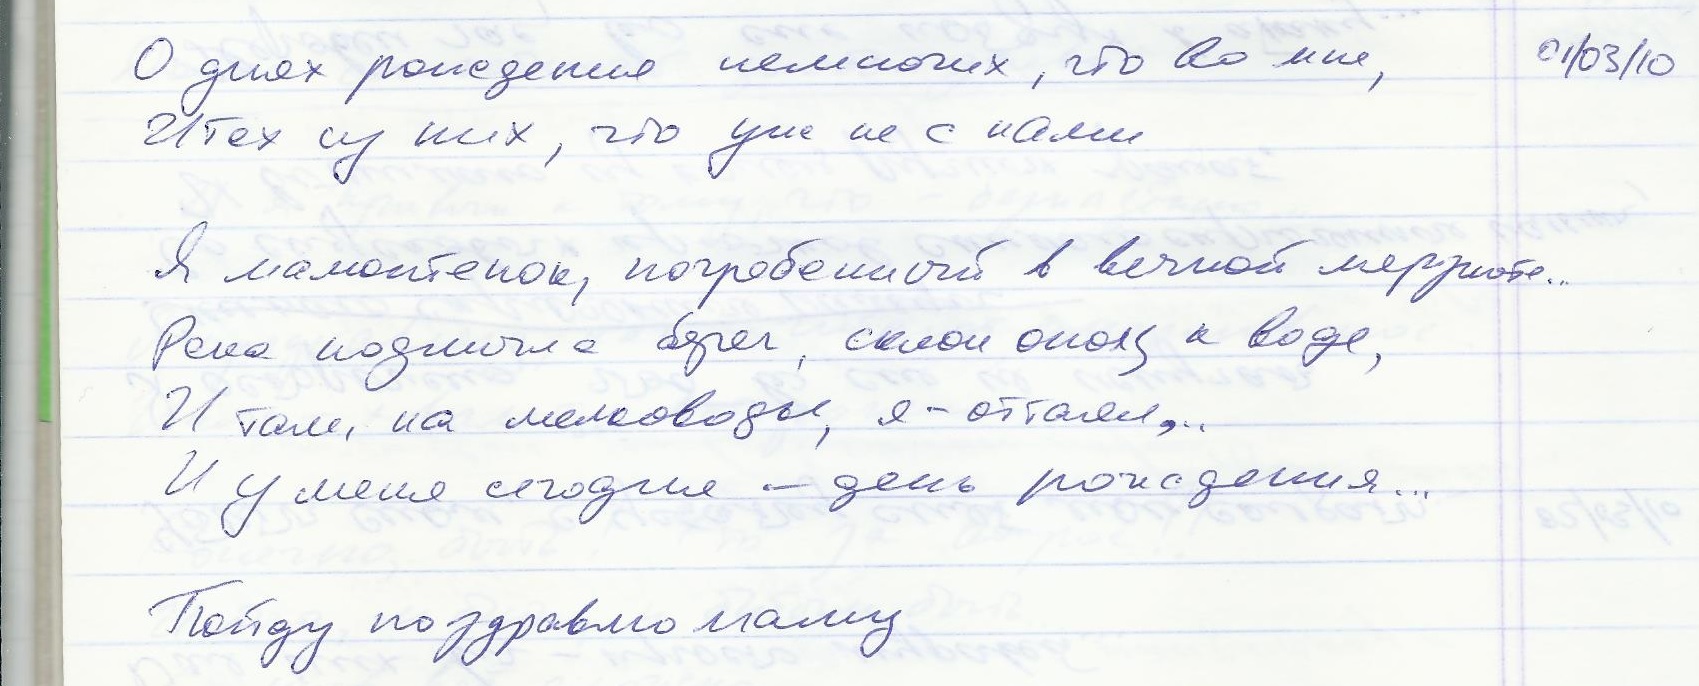 О днях рождения немногих, что во мне, 01/03/10
И тех из них, что уже не с нами
Я мамонтенок, погребенный в вечной мерзлоте...
Река подмыла берег, склон ополз к воде,
И там, на мелководьи, я - оттаял,..
И у меня сегодня - день рождения...
Пойду поздравлю маму